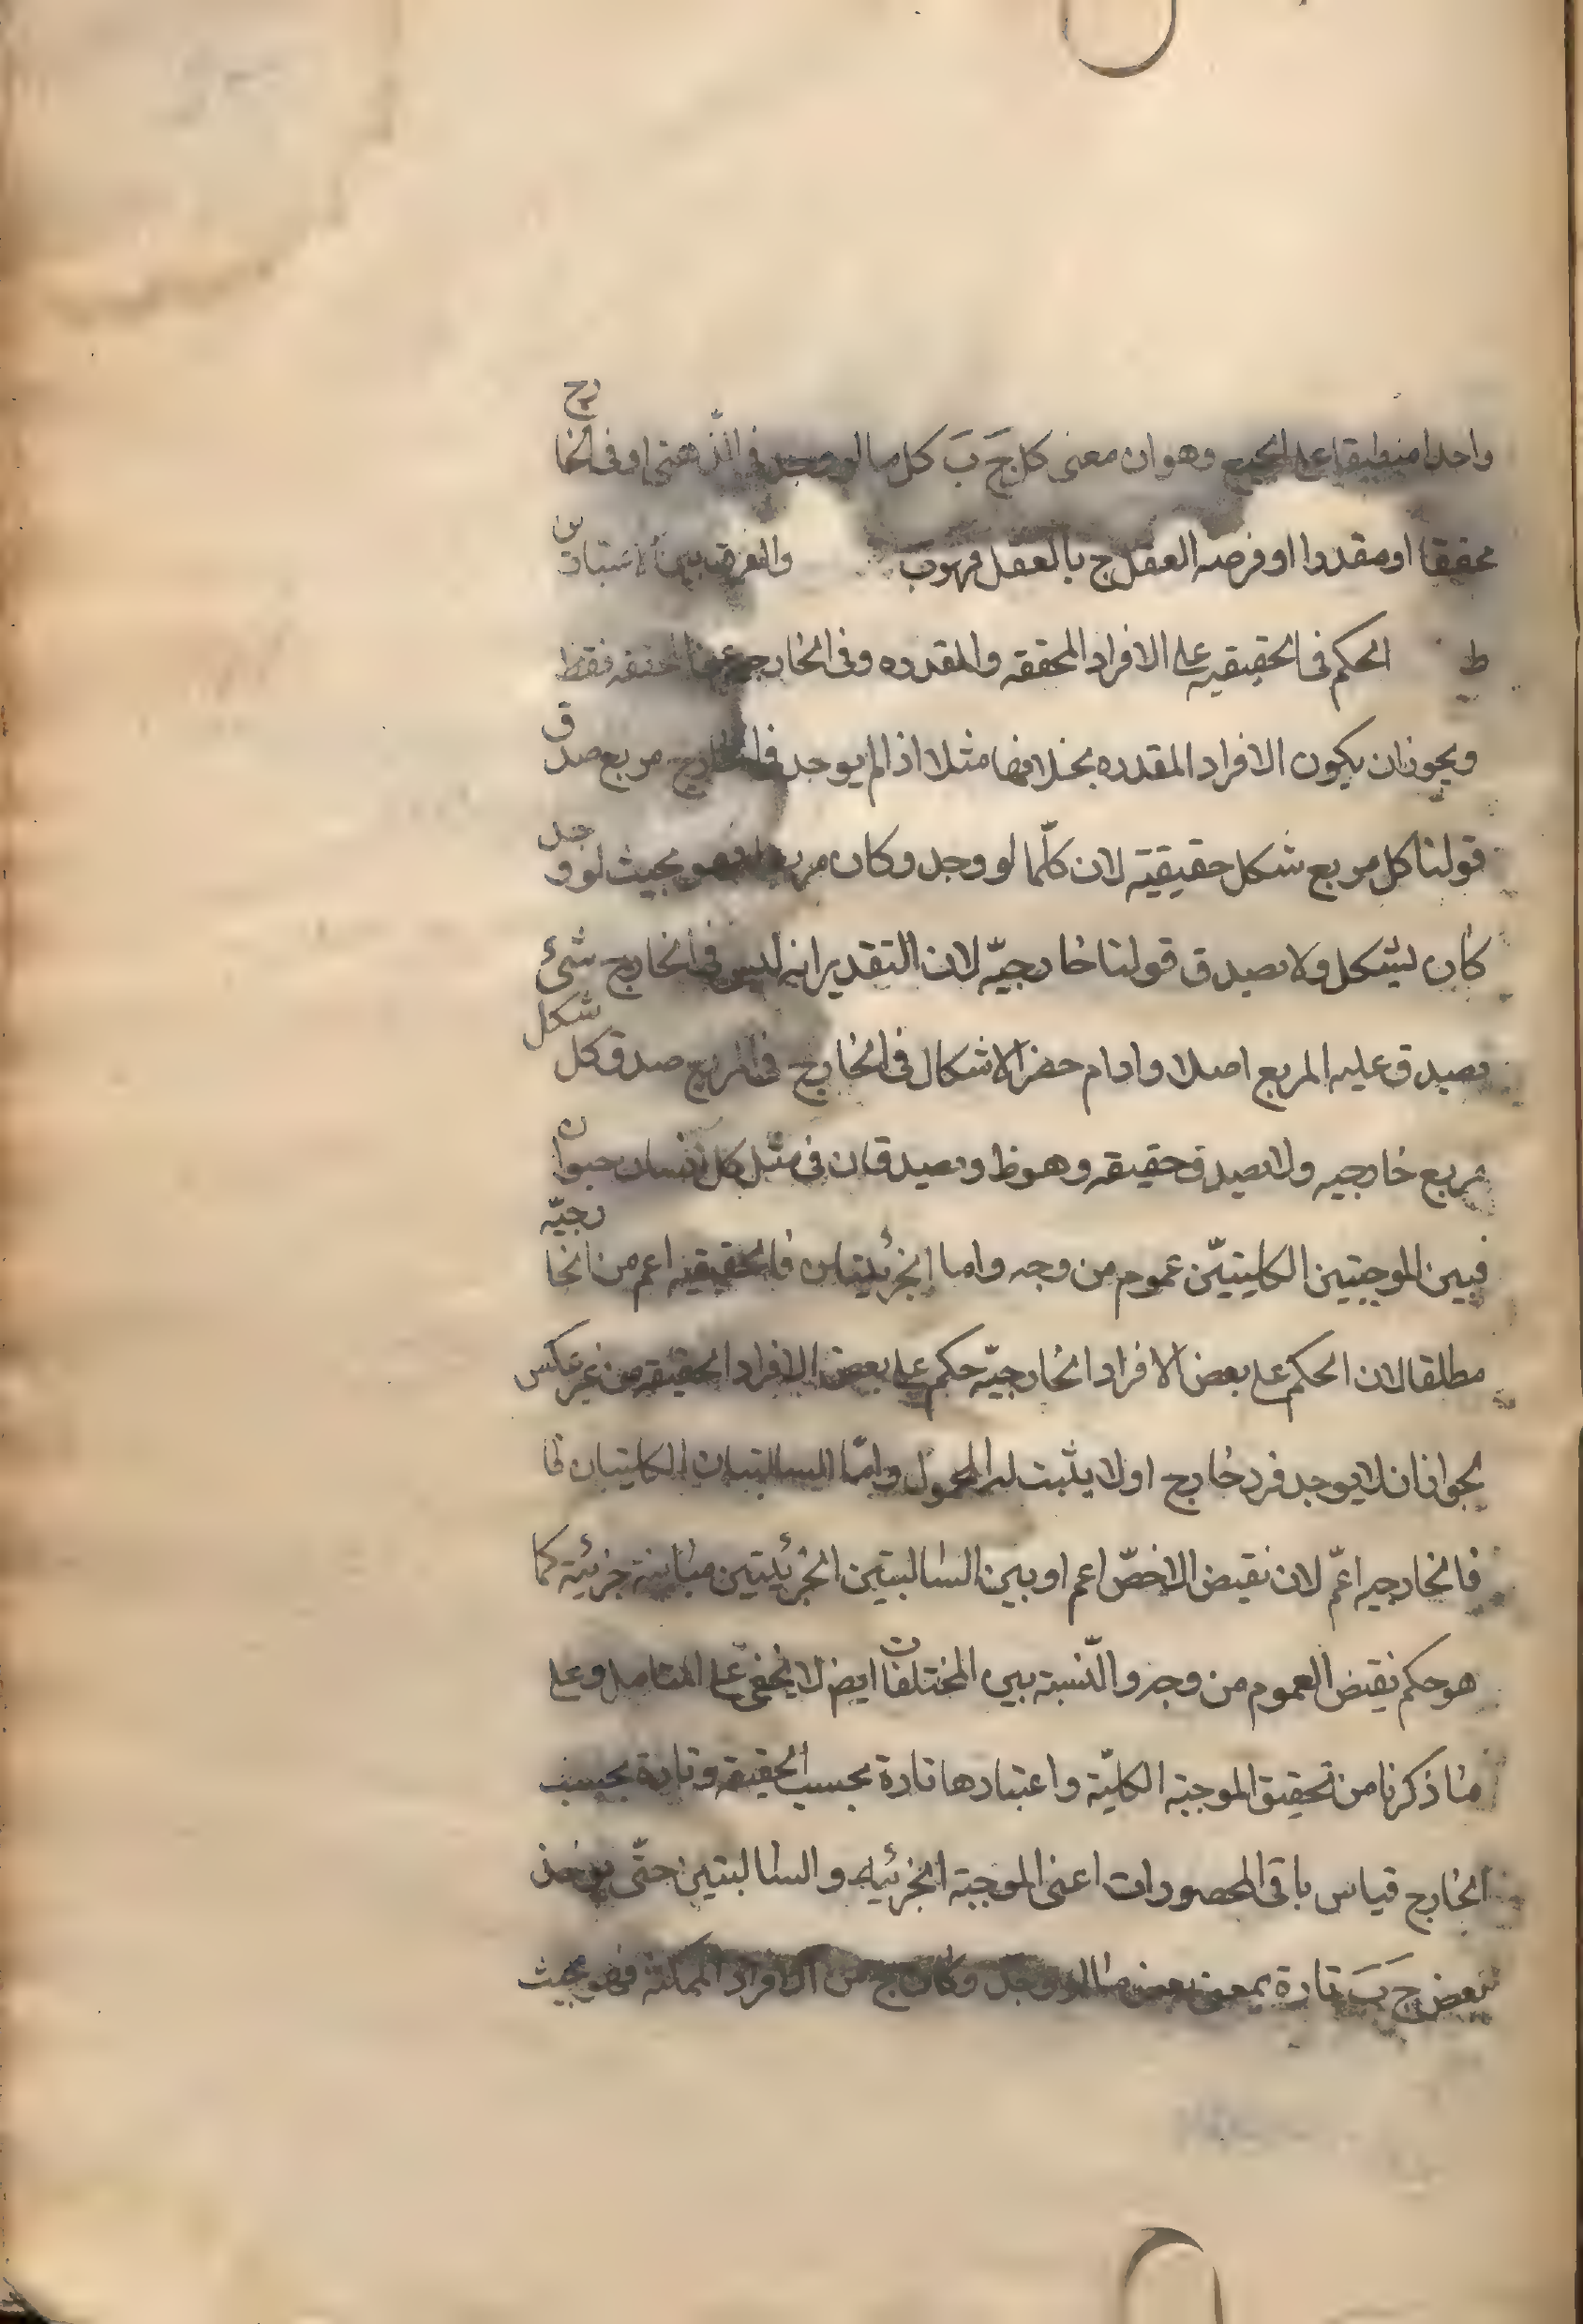 واحدا منطبقا على الجميع وهو ان معنى كل جَ بَ كل ما لو وجد فى الذهن او فى الخارج
محققا او مقدرا او فرضه العقل ج بالعقل فهو ب والفرق بين الاعتبارين
ط الحكم فى الحقيقيه على الافراد المحققه والمقدره وفى الخارجيه المحققه فقط
ويجوز ان يكون الافراد المقدره بخلافها مثلا اذا لم يوجد فى الخارج مربع صدق
قولنا كل مربع شكل حقيقيّة لان كلّما لو وجد وكان مربعا فهو بحيث لو وجد
كان لشكل ولا يصدق قولنا خارجيّه لان التقدير انه ليس فى الخارج شئ
يصدق عليه المربع اصلا واذا م حصر الاشكال فى الخارج فى المربع صدق كل شكل
مربع خارجيه ولا يصدق حقيقه وهو ظ ويصدقان فى مثل كل انسان حيوان
فبين الموجبتين الكليتيّن عموم من وجه واما الجزئيتان فالحقيقيه اعم من الخارجيّه
مطلقا لان الحكم على بعض الافراد الخارجيّه حكم على بعض الافراد الحقيقه من غير عكس
لجواز ان لا يوجد فرد خارج او لا يثبت له المحمول وامّا السالبتان الكليتان فا
فالخارجيه اعمّ لان نقيض الاخصّ اعم او بين السالبتين الجزئيتين مباينة جزئية كما
هو حكم نقيض العموم من وجه والنّسبة بين المختلفات ايض لا يخفى على المتامل وعلى
ما ذكرنا من تحقيق الموجبة الكليّة واعتبارها تارة بحسب الحقيقه وتارة بحسب
الخارج قياس باقى المحصورات اعنى الموجبة الجزئيه والسالبتين حتّى يوخذ
بعض جَ بَ تارة بمعنى بعض ما لو وجد وكان ج من الافراد الممكنة فهو بحيث